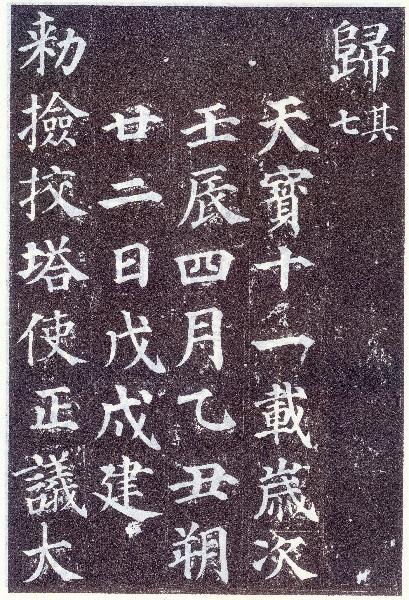 歸其七
天寶十一載歲次
壬辰四月乙丑朔
廿二日戊戌建
勑撿挍塔使正議大